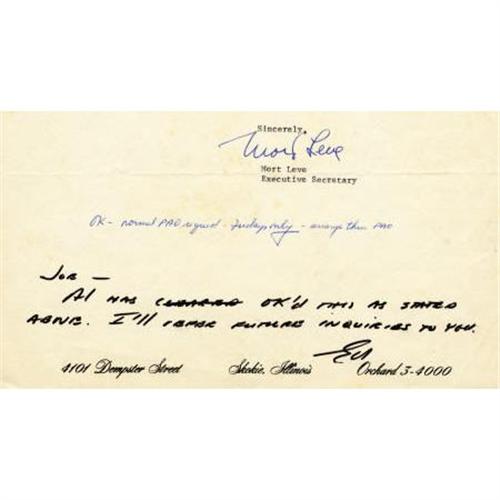 Sincerely,
Mort Leve
Mort Leve
Executive Secretary
OK - normal PAO signed - Friday only - arrange thru PAO
JOE -
AL HAS CLEARED OK'D THIS AS STATED
ABOVE. I'LL REFER FUTURE INQUIRIES TO YOU.
Ed
4101 Dempster Street Skokie, Illinois Orchard 3-4000